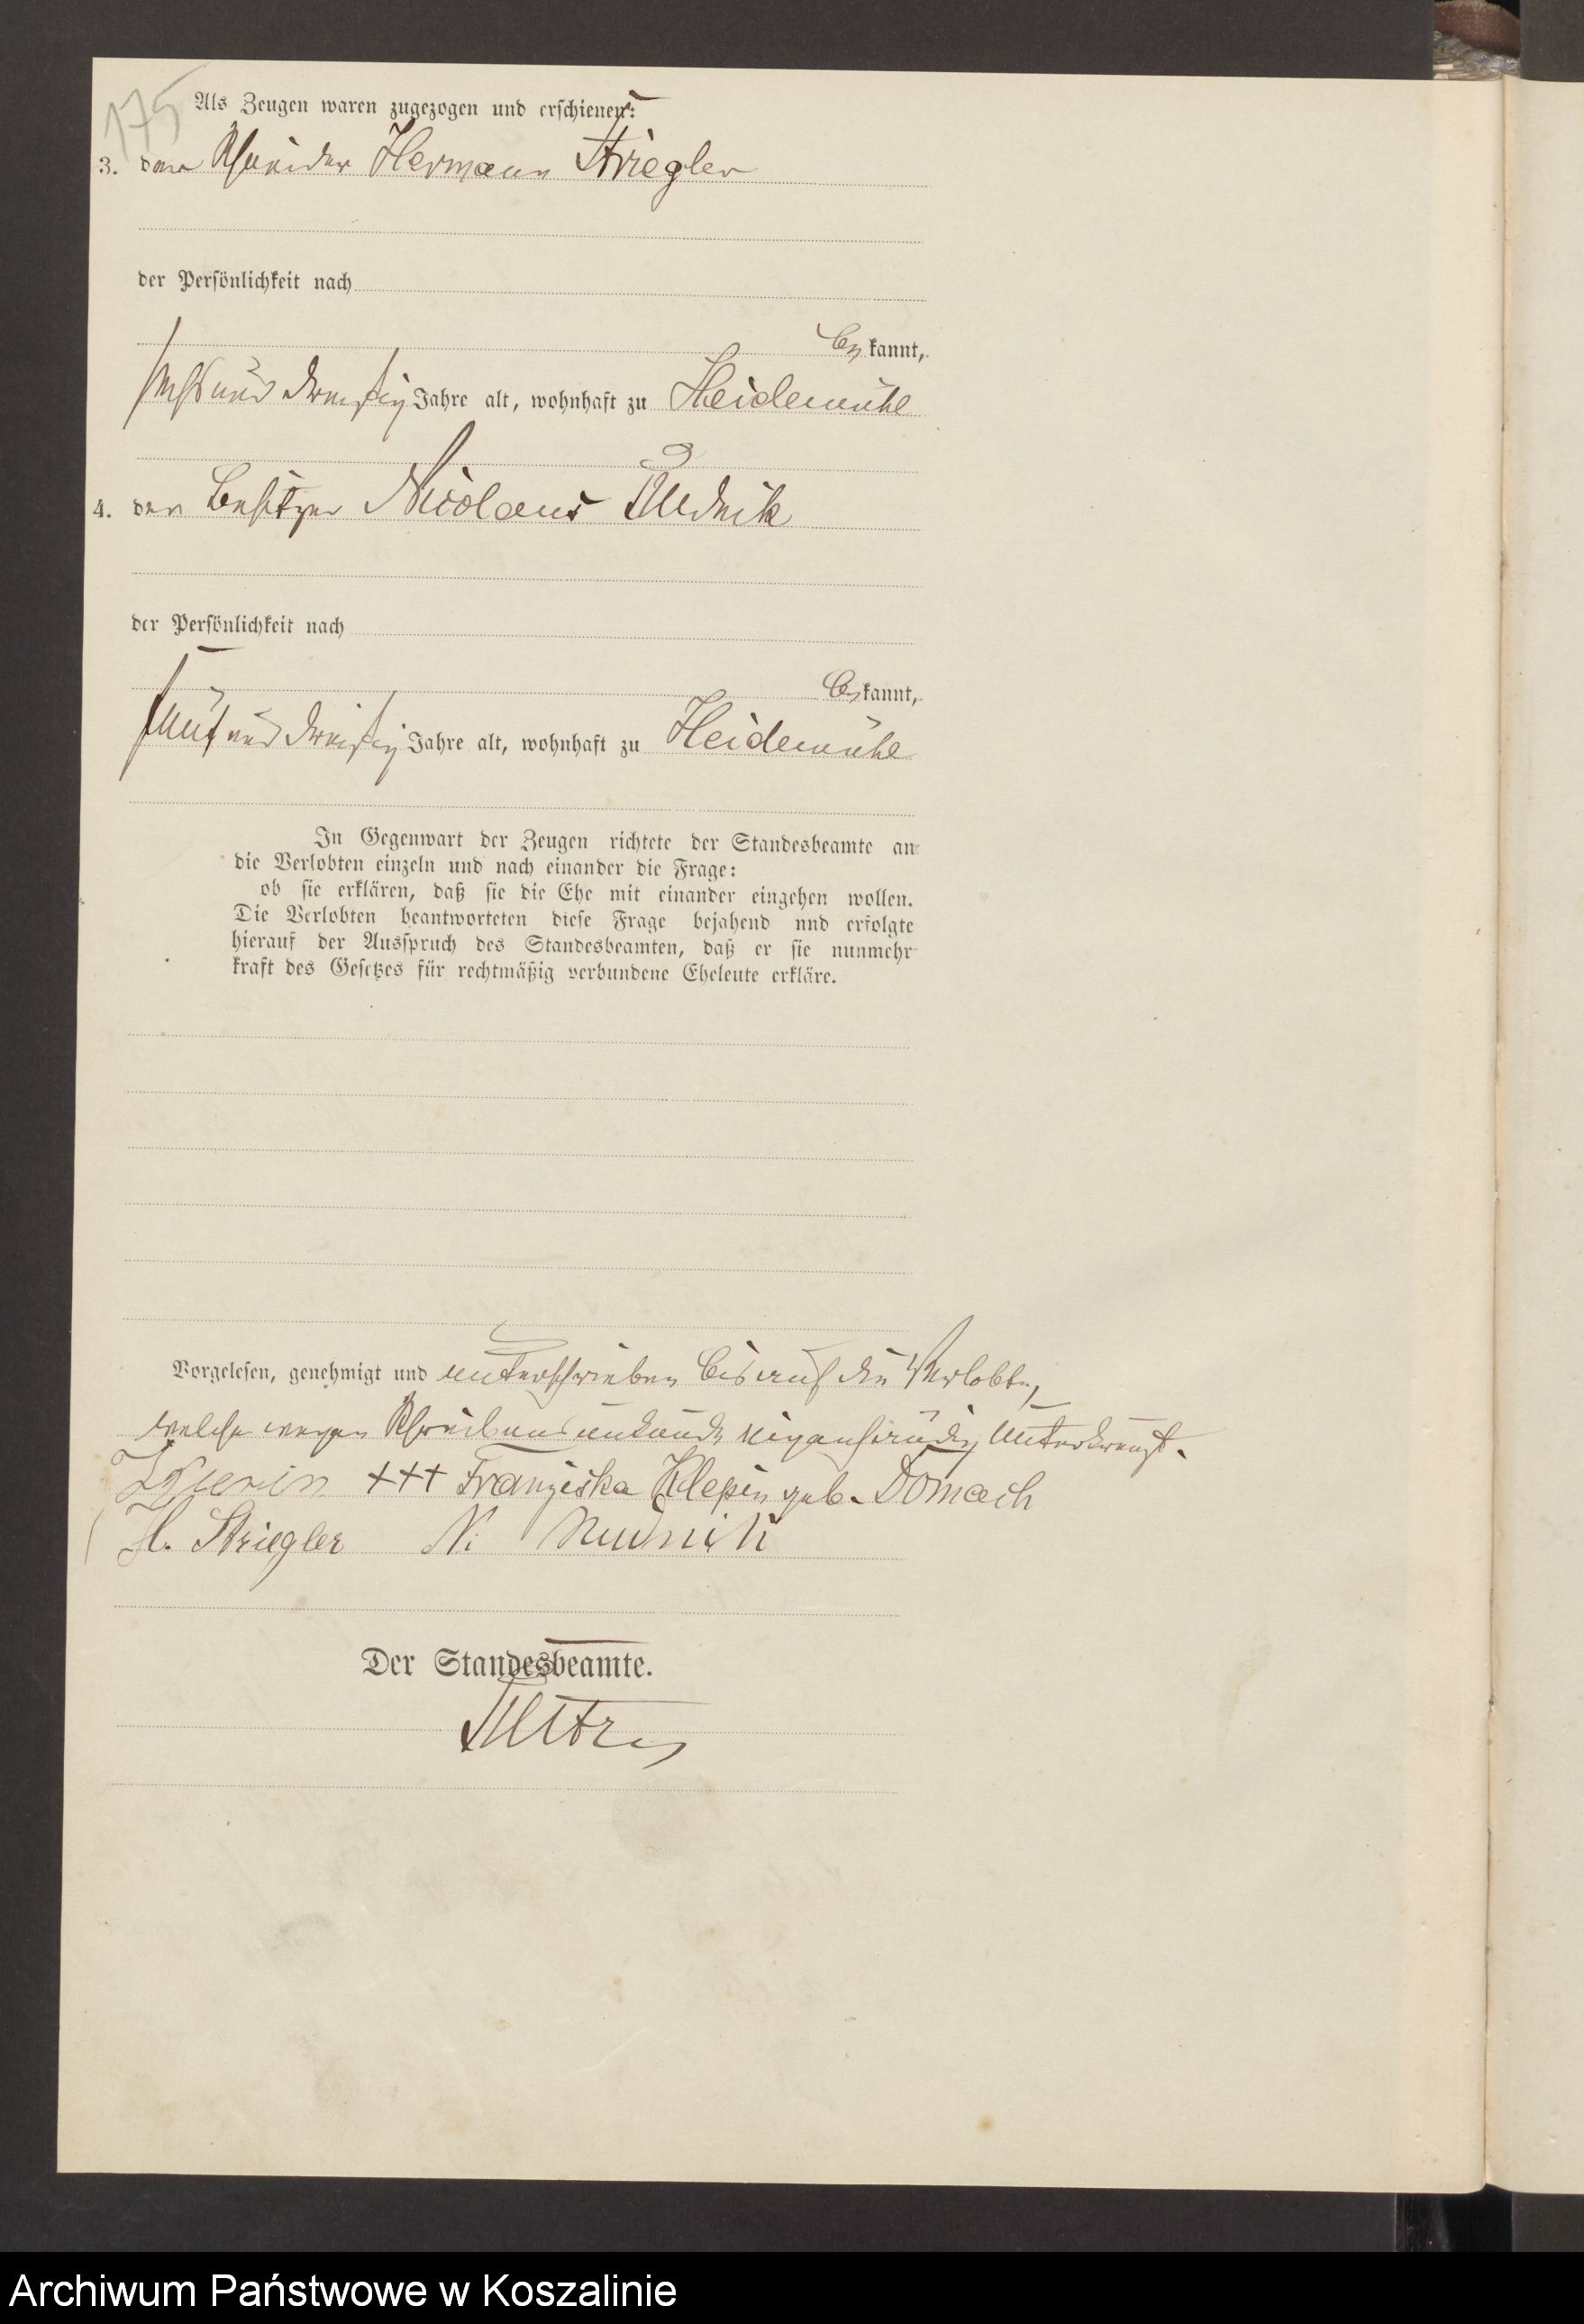 175
Als Zeugen waren zugezogen und erschienen:
3. der Schneider Hermann Striegler
der Persönlichkeit nach
be kannt,
sechs und dreißig Jahre alt, wohnhaft zu Heidemühl
4. der Besitzer Nicolaus Rudnik
der Persönlichkeit nach
be kannt,
fünf und dreißig Jahre alt, wohnhaft zu Heidemühl
In Gegenwart der Zeugen richtete der Standesbeamte an
die Verlobten einzeln und nach einander die Frage:
ob sie erklären, daß sie die Ehe mit einander eingehen wollen.
Die Verlobten beantworteten diese Frage bejahend und erfolgte
hierauf der Ausspruch des Standesbeamten, daß er sie nunmehr
kraft des Gesetzes für rechtmäßig verbundene Eheleute erkläre.
Vorgelesen, genehmigt und unterschrieben bis auf die Verlobte,
welche wegen Schreibensunkunde eigenhändig unterkreuzt.
+++ Franziska Klepin geb. Domach
H. Striegler N. Rudnik
Der Standesbeamte.